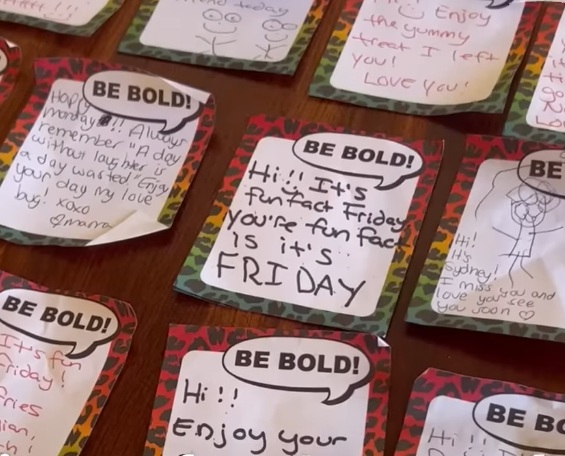 end today
Enjoy
the yummy
treat I left
you!
Love you!
BE BOLD!
Happy
monday!!! Always
remember "A day
without laughter is
a day wasted" Enjoy
your day my love
bug! xoxo
mama
BE BOLD!
Hi!! It's
funfact Friday
you're fun fact
is it's
FRIDAY
BE
Hi!
It's
Sydney!
I miss you and
love you see
you soon
BE BOLD!
It's fun
Friday!
fries
BE BOLD!
Hi!!
Enjoy your
BE BO
Hi!!